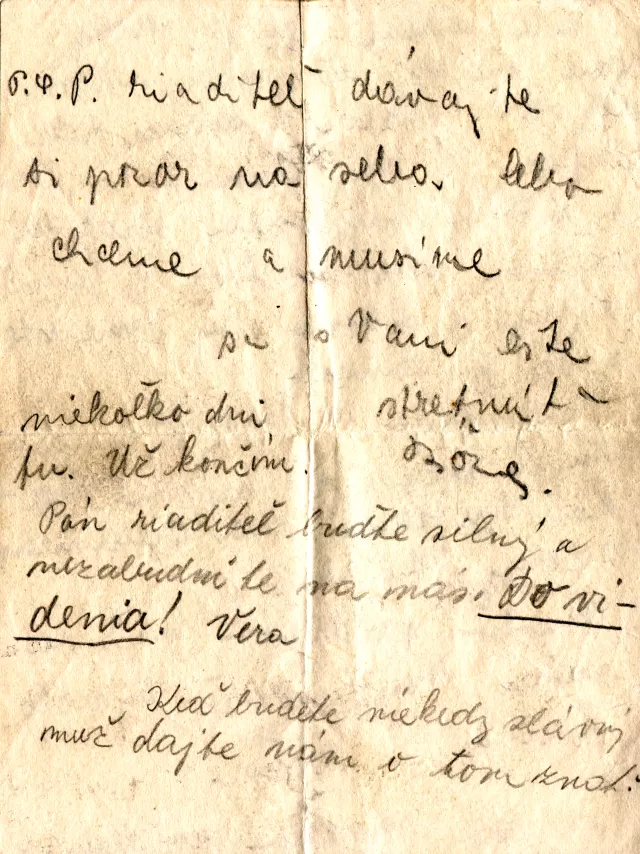 riaditeľ dávajte
si pozor na seba. lebo
chceme a musíme
sa s Vami ešte
niekoľko dni stretnúť
tu. Už končím.
Pán riaditeľ buďte silný a
nezabudnite na nás. Do vi-
denia! Vera
Keď budete niekedy slávny
muž dajte nám o tom znať.